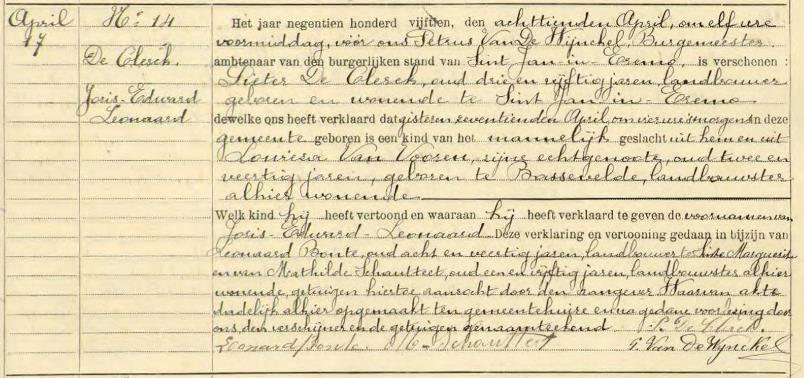 April
17
N.º 14
De Clerck.
Joris-Edward
Leonaard
Het jaar negentien honderd vijftien, den achttienden April, om elf ure
voormiddag, vóór ons Petrus Van De Wijnckel, Burgemeester,
ambtenaar van den burgerlijken stand van Sint Jan-in-Eremo, is verschenen :
Pieter De Clerck, oud drie en vijftig jaren, landbouwer
geboren en wonende te Sint Jan-in-Eremo
dewelke ons heeft verklaard dat gisteren zeventienden April, om vier ure 's morgens in deze
gemeente geboren is een kind van het mannelijk geslacht uit hem en uit
Louvisa Van Vooren, zijne echtgenoote, oud twee en
veertig jaren, geboren te Bassevelde, landbouwster
alhier wonende
Welk kind hij heeft vertoond en waaraan hij heeft verklaard te geven de voornamen van
Joris-Edward-Leonaard. Deze verklaring en vertooning gedaan in bijzijn van
Leonaard Bonte, oud acht en veertig jaren, landbouwer te Sinte Marguerite
en van Mathilde Schautteet, oud een en vijftig jaren, landbouwster alhier
wonende, getuigen hiertoe aanzocht door den aangever Waarvan akte
dadelijk alhier opgemaakt ten gemeentehuize en na gedane voorlezing door
ons, den verschijner en de getuigen genaamteekend P. De Clerck.
Leonard Bonte. M- Schautteet P. Van De Wynckel